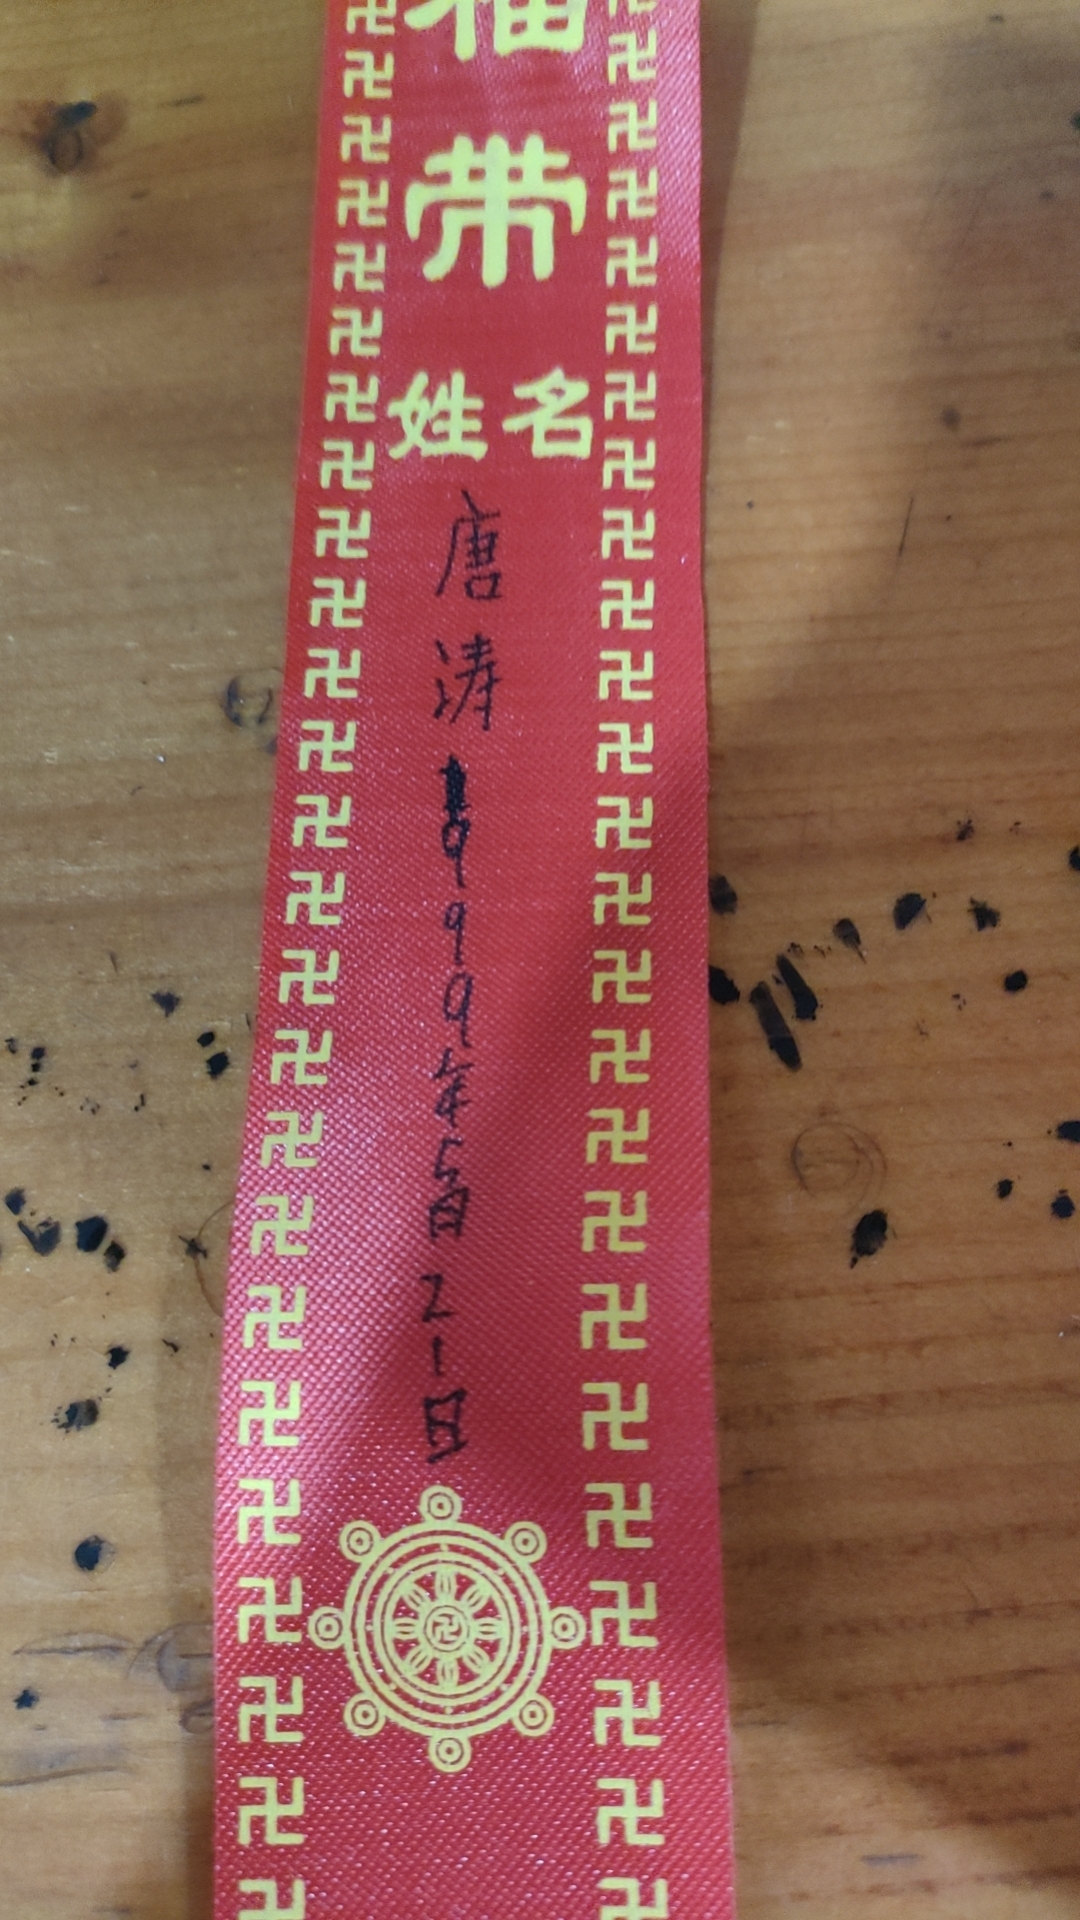 福
带
姓名
唐
涛
1999年5月
21日